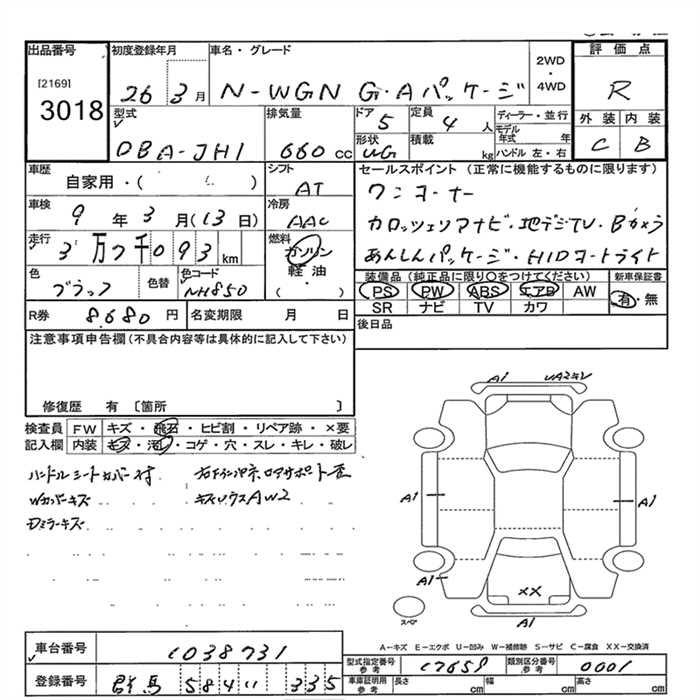 出品番号 初度登録年月 車名・グレード 評価点
[2169]
3018
26 3月 N-WGN G・Aパッケージ 2WD・4WD R
型式 排気量 ドア 定員 ディーラー・並行 外装 内装
DBA-JH1 660cc 5 4人 モデル年式 年 C B
形状 積載 ハンドル 左・右
WG kg
車歴 シフト セールスポイント (正常に機能するものに限ります)
自家用・( ) AT ワンオーナー
車検 冷房
9年3月(13日) AAC カロッツェリアナビ・地デジTV・Bカメラ
走行 燃料
3万7千093km ガソリン・軽油 ( ) あんしんパッケージ・HIDオートライト
色 色替 色コード 装備品(純正品に限り○をつけてください) 新車保証書
ブラック NH850 PS PW ABS エアB AW 有・無
SR ナビ TV カワ
R券 8,680円 名変期限 月 日 後日品
注意事項申告欄(不具合内容等は具体的に記入して下さい)
修復歴 有 〔箇所 〕
検査員 FW キズ・飛石・ヒビ割・リペア跡・×要
記入欄 内装 キズ・汚レ・コゲ・穴・スレ・キレ・破レ
ハンドルシートカバー付
Wカバーキズ キズソウスAW2
Dミラーキズ
A1 UA2キレ
A1 A1
A1
XX
A1
スペア
A-キズ E-エクボ U-凹み W-補修跡 S-サビ C-腐食 XX-交換済
車台番号 1038731
型式指定番号参考 17658 類別区分番号参考 0001
登録番号 群馬 584 い 335 車庫証明用参考 長さ cm 幅 cm 高さ cm